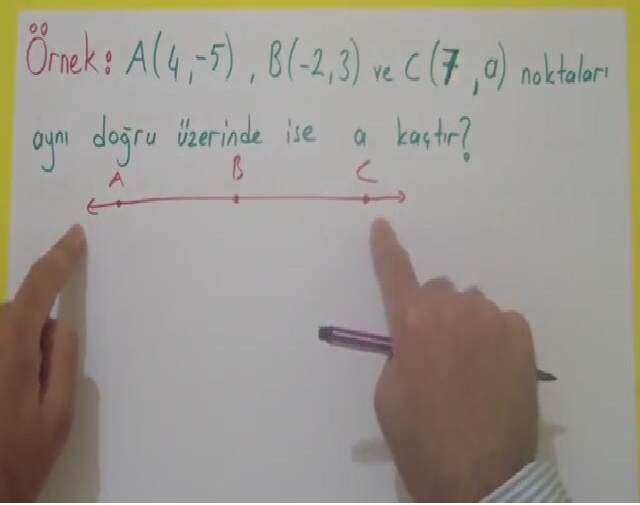 Örnek: A(4,-5), B(-2,3) ve C(7,a) noktaları
aynı doğru üzerinde ise a kaçtır?
A B C